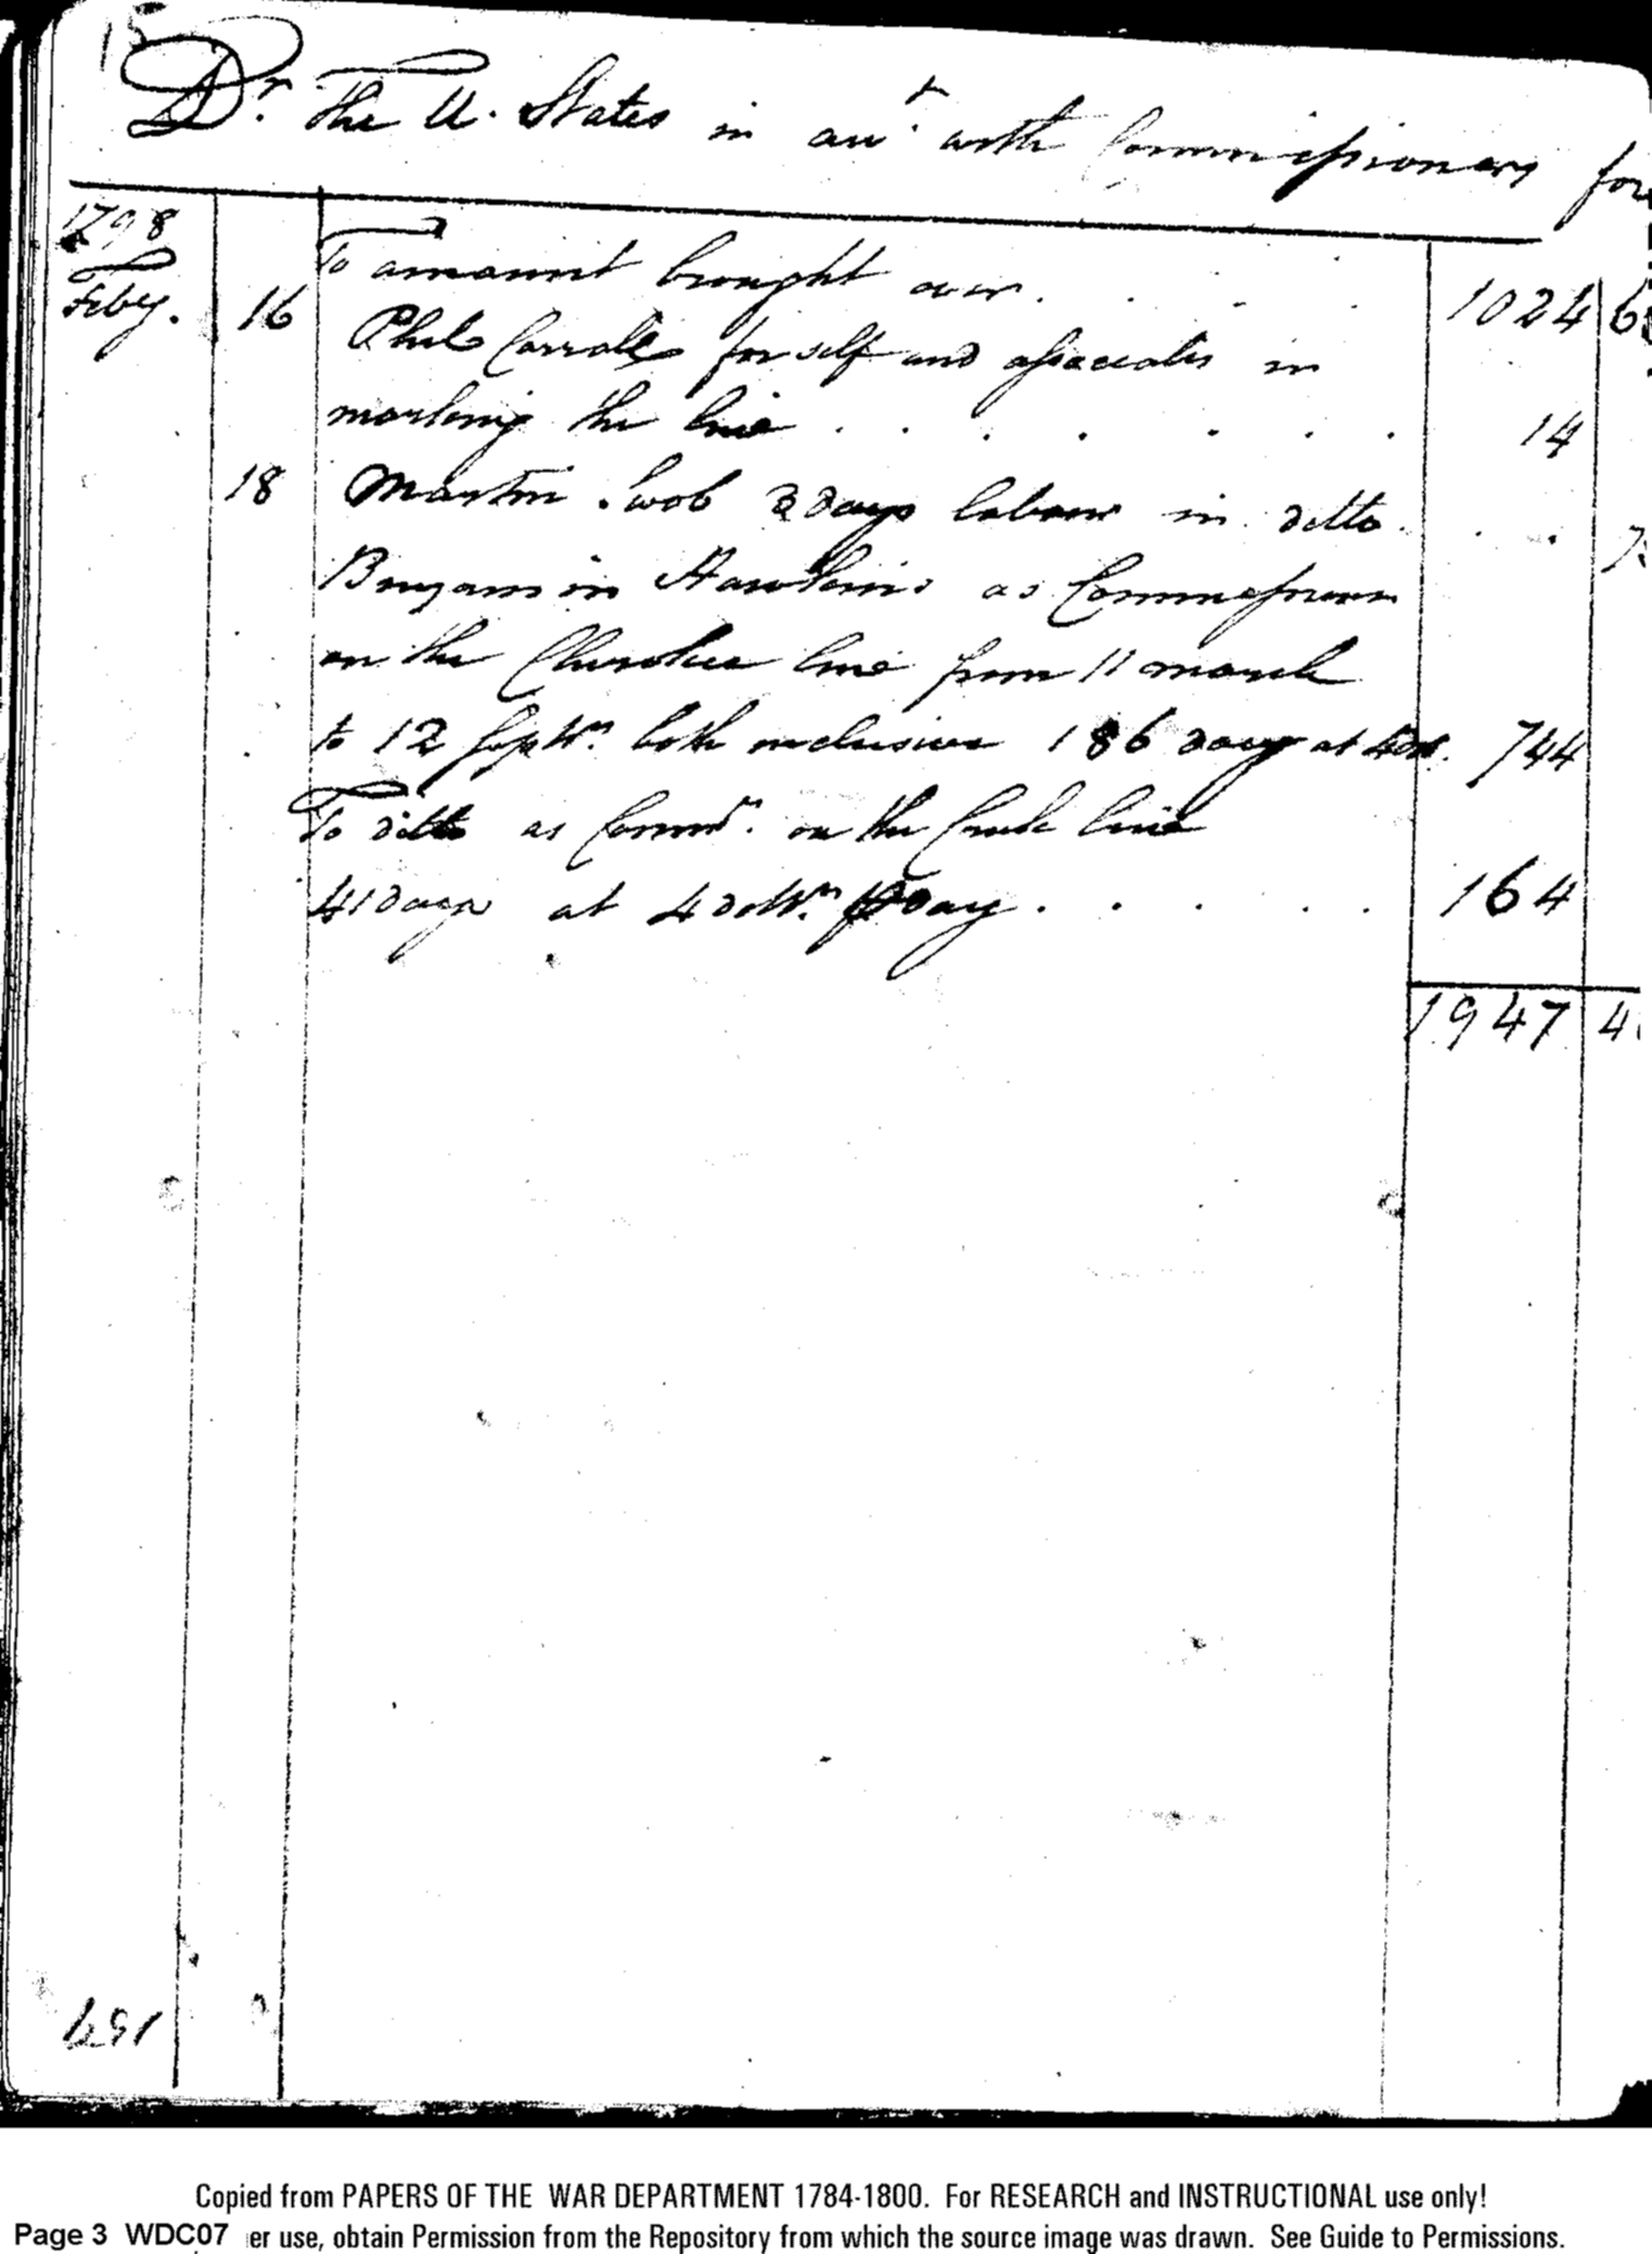 15
Dr. The U. States in acct. with Commissioners for
1798
To amount brought over . . . . 1024 6
Feby. 16 Phil Carroll for self and associates in
marking the line . . . . . . . 14
18 Martin 3 days labour in ditto . . . 7
Benjamin Hawkins as Commissioner
on the Cherokee line from 11 march
to 12 Septr. both inclusive 186 days at 4 744
To ditto as Commr. on the Creek line
41 days at 4 dollrs. Day . . . . . 164
1947 4
157
Copied from PAPERS OF THE WAR DEPARTMENT 1784-1800. For RESEARCH and INSTRUCTIONAL use only!
Page 3 WDC07 er use, obtain Permission from the Repository from which the source image was drawn. See Guide to Permissions.